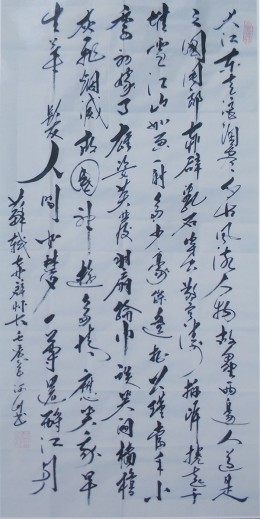 大江东去浪淘尽千古风流人物故垒西边人道是
三国周郎赤壁乱石穿空惊涛拍岸捲起千
堆雪江山如画一时多少豪杰遥想公瑾当年小
乔初嫁了雄姿英发羽扇纶巾谈笑间樯橹
灰飞烟灭故国神游多情应笑我早
生华发人间如梦一尊还酹江月
苏轼赤壁怀古